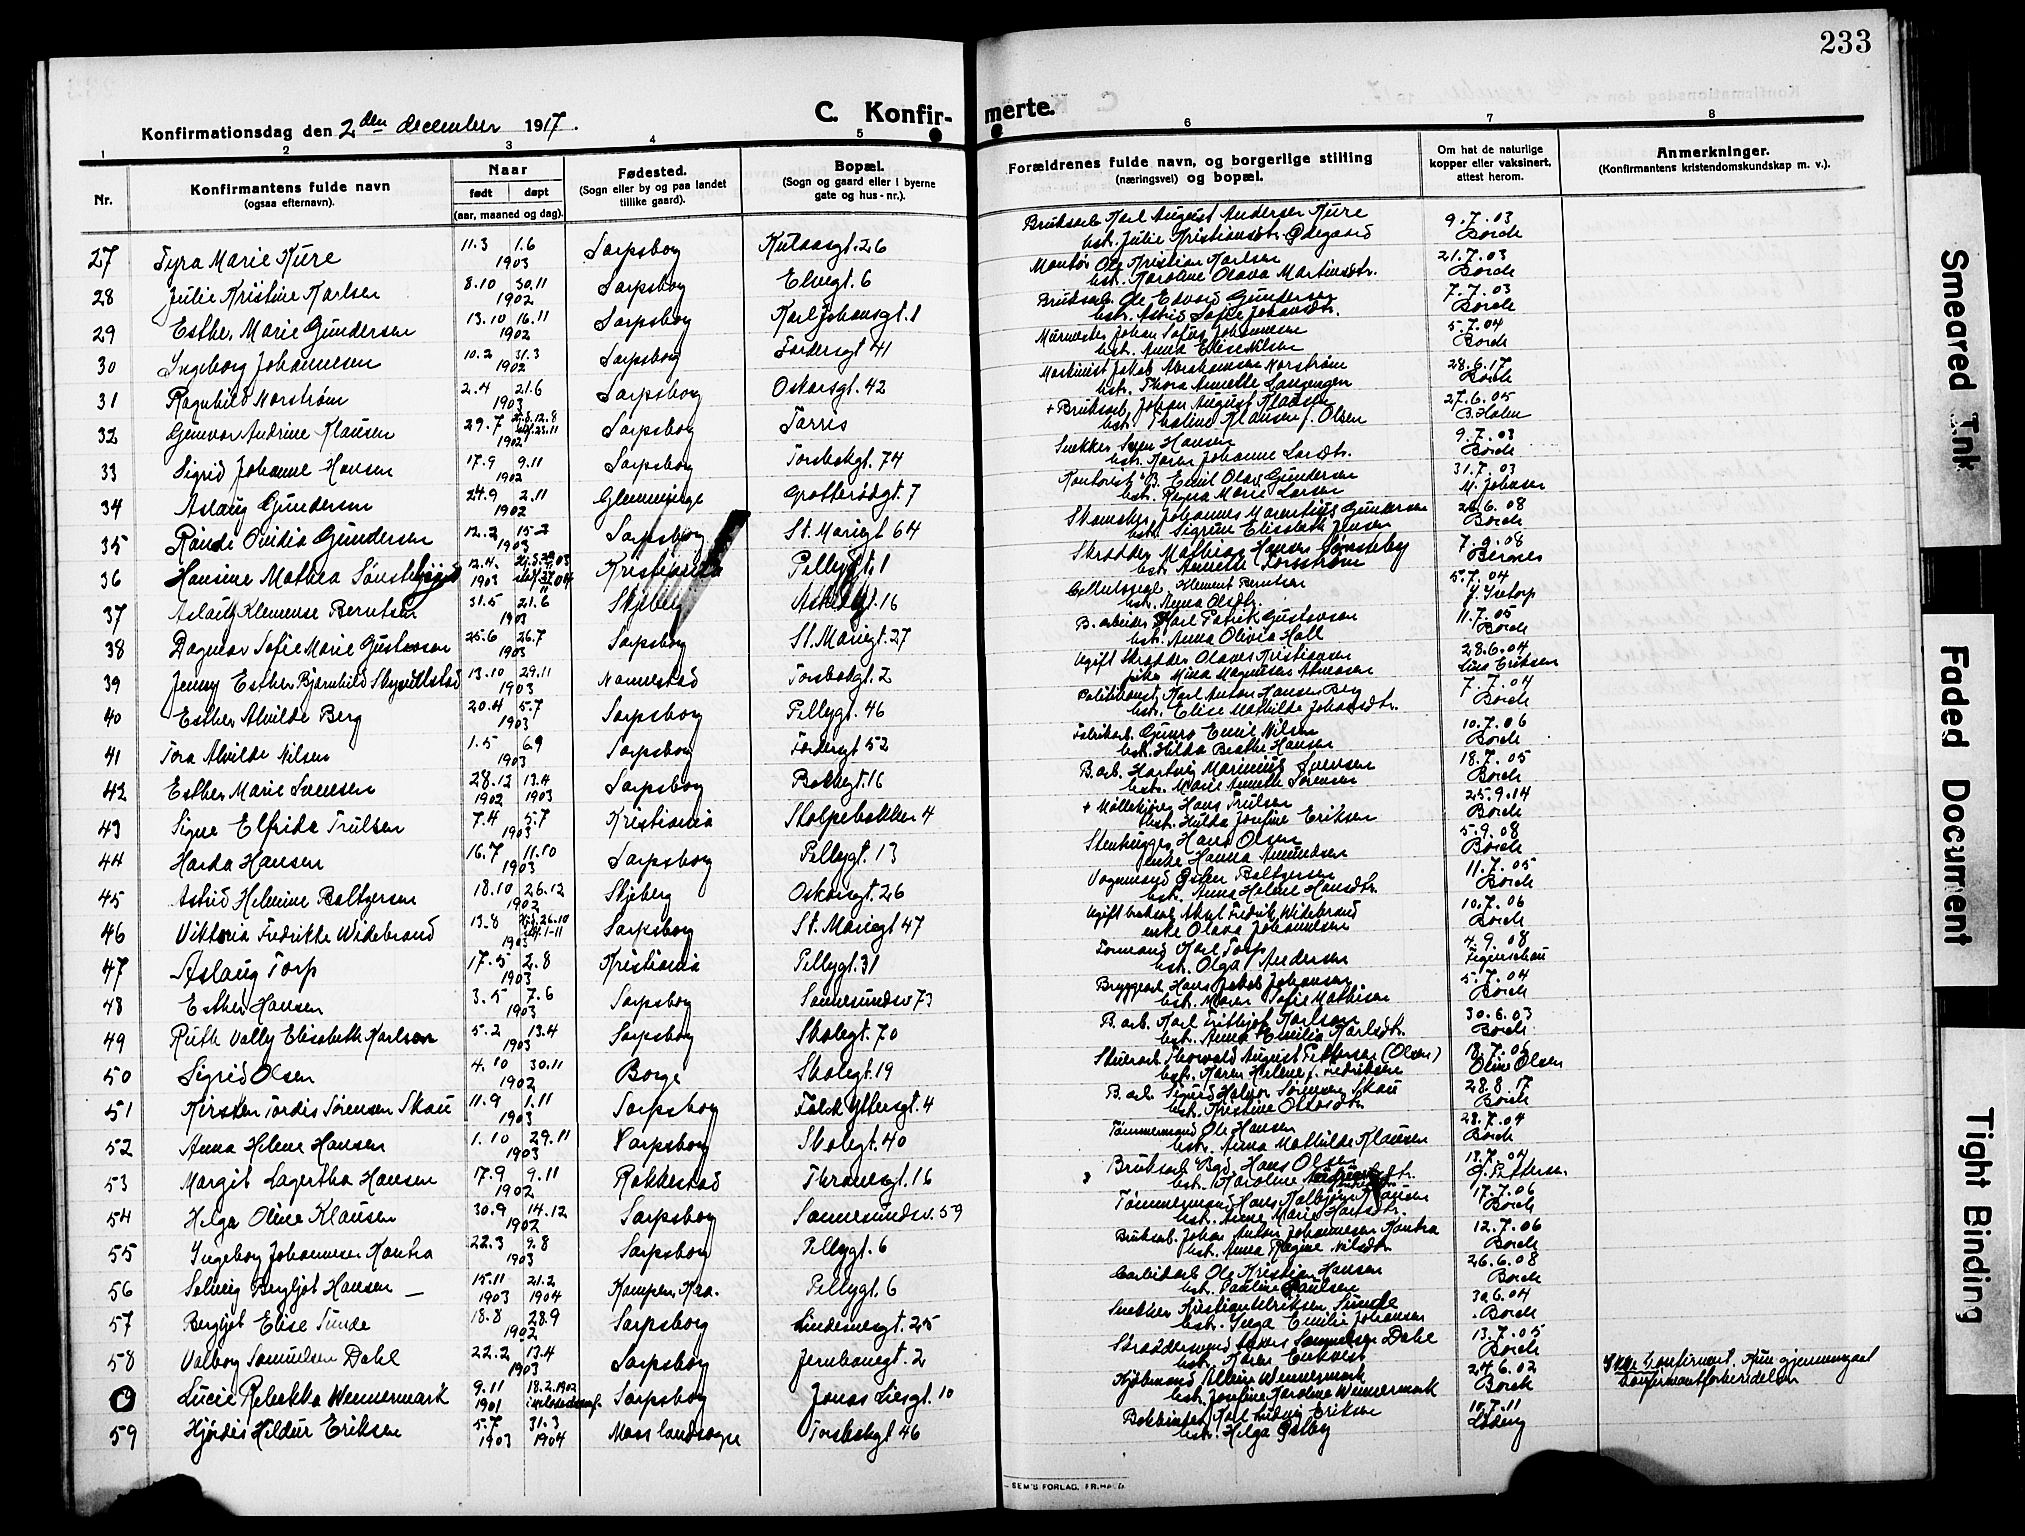 233
Konfirmationsdag den 2den december 1917.
C. Konfir-
merte.
1 2 3 4 5 6 7 8
Nr.
Konfirmantens fulde navn
(ogsaa efternavn).
Naar
født døpt
(aar, maaned og dag).
Fødested.
(Sogn eller by og paa landet
tillike gaard).
Bopæl.
(Sogn og gaard eller i byerne
gate og hus-nr.).
Forældrenes fulde navn, og borgerlige stilling
(næringsvei) og bopæl.
Om hat de naturlige
kopper eller vaksinert,
attest herom.
Anmerkninger.
(Konfirmantens kristendomskundskap m. v.).
27 Tyra Marie Kure 11.3 1.6 1903 Sarpsborg Kulaasgt. 26 Bruksarb. Karl August Andersen Kure 9.7.03
hstr. Julie Kristiansdtr. Ødegaard Borch
28 Julie Kristine Karlsen 8.10 30.11 1902 Sarpsborg Elvegt. 6 Montør Ole Kristian Karlsen 21.7.03
hstr. Karoline Olava Martinsdtr. Borch
29 Esther Marie Gundersen 13.10 16.11 1902 Sarpsborg Karl Johansgt. 1 Bruksarb. Ole Edvard Gundersen 7.7.03
hstr. Astrid Sofie Johansdtr. Borch
30 Ingeborg Johannesen 10.2 31.3 1902 Sarpsborg Fordersgt 41 Johan Sofus Johannesen 5.7.04
hstr. Anna Elise Nilsen Borch
31 Ragnhild Morstrøm 2.4 21.6 1903 Sarpsborg Oskarsgt. 42 Maskinist Jakob Abrahamsen Morstrøm 28.6.17
hstr. Thora Annette Langengen Borch
32 Gunvor Andrine Klausen 29.7 1902 Sarpsborg Tarris + Bruksarb. Johan August Klausen 27.6.05
hstr. Klausen f. Olsen B. Holm
33 Sigrid Johanne Hansen 17.9 9.11 1902 Sarpsborg Torsbekgt. 74 Snekker Hansen 9.7.03
hstr. Karen Johanne Larsdtr. Borch
34 Aslaug Gundersen 24.9 2.11 1902 Glemminge Grotterødgt. 7 Kontorist B. Emil Olav Gundersen 31.7.03
hstr. Ragna Marie Larsen M. Johnsen
35 Randi Ovidia Gundersen 12.2 15.2 1903 Sarpsborg St. Mariegt 64 Skomaker Johannes Marentius Gundersen 26.6.08
hstr. Sigrine Elisabeth Jensen Borch
36 Hansine Mathea 12.4. 1903 Kristiania Pellygt. 1 Skrædder Mathias Hansen 7.9.08
hstr. Annette
37 Aslaug Klemense Berntsen 31.5 21.6 1903 Skjeberg 16 Klement Berntsen 5.7.04
hstr. Anna Olsdtr.
38 Dagmar Sofie Marie Gustavsen 25.6 26.7 1903 Sarpsborg St. Mariegt. 27 B. arbeider Karl Patrik Gustavsen 11.7.05
hstr. Anna Olivia Hall Borch
39 Jenny Esther Bjørnhild 13.10 29.11 1903 Nannestad Torsbekgt. 2 Ugift Skrædder Olaves Kristiansen 28.6.04
pike Mina Magnusen Eriksen
40 Esther Alvilde Berg 20.4 5.7 1903 Sarpsborg Pellygt. 46 Politikonst. Karl Anton Hansen Berg 7.7.04
hstr. Elise Mathilde Johansdtr. Borch
41 Tora Alvilde Nilsen 1.5 6.9 1903 Sarpsborg 52 Fabrikarb. Emil Nilsen 10.7.06
hstr. Hilda Beathe Hansen Borch
42 Esther Marie Svensen 28.12 1902 13.4 1903 Sarpsborg Bakkegt. 16 B. arb. Hartvig Marinius Svensen 18.7.05
hstr. Marie Annette Sørensen Borch
43 Signe Elfrida Trulsen 7.4 5.7 1903 Kristiania Stolpebakken 4 + Møllekjører Hans Trulsen 25.9.14
hstr. Hulda Josefine Eriksen Borch
44 Harda Hansen 16.7 11.10 1903 Sarpsborg Pellygt. 13 Stenhugger Hans Olsen 5.9.08
enke Hanna Amundsen Borch
45 Astrid Helmine Baltzersen 18.10 26.12 1902 Skjeberg Oskarsgt. 26 Vognmand Baltzersen 11.7.05
hstr. Anna Helene Hansdtr. Borch
46 Viktoria Fredrikke Widebrand 13.8 1903 Sarpsborg St. Mariegt 47 Ugift Aksel Fredrik Widebrand 10.7.06
enke Olava Johannesen Borch
47 Aslaug Torp 17.5 2.8 1903 Kristiania Pellygt. 31 Formand Karl Torp 4.9.08
hstr. Olga Andersen
48 Esther Hansen 3.5 7.6 1903 Sarpsborg Sannesundsv 73 Bryggearb. Hans Jakob Johansen 5.7.04
hstr. Maren Sofie Mathisen Borch
49 Ruth Vally Elisabeth Karlsson 5.2 13.4 1903 Sarpsborg Skolegt. 70 B. arb. Karl Frithjof Karlsson 30.6.03
hstr. Anna Emilie Karlsdtr. Borch
50 Sigrid Olsen 4.10 30.11 1902 Borge Skolegt. 19 Thorvald August Pettersen (Olsen) 18.7.06
hstr. Karen Helene f. Fredriksen Oline Olsen
51 Kirsten Tordis Sørensen Skau 11.9 1.11 1903 Sarpsborg Falck Yttersgt. 4 B. arb. Sigurd Halvor Sørensen Skau 28.8.17
hstr. Kristine Ottosdtr. Borch
52 Anna Helene Hansen 1.10 29.11 1903 Sarpsborg Skolegt. 40 Tømmermand Ole Hansen 28.7.04
hstr. Anna Mathilde Klausen Borch
53 Margit Lagertha Hansen 17.9 9.11 1902 Rakkestad Thranesgt. 16 Bruksarb. Hans Olsen 18.7.04
hstr. Karoline Pettersen
54 Helga Oline Klausen 30.9 14.12 1902 Sarpsborg Sannesundsv. 59 Tømmermand Hans Klausen 17.7.06
hstr. Anne Marie Hansdtr. Borch
55 Ingeborg Johannesen Kantra 22.3 9.8 1903 Sarpsborg Pellygt. 6 Bruksarb. Johan Anton Johannesen Kantra 12.7.06
hstr. Anna Regine Nilsdtr. Borch
56 Solveig Bergljot Hansen 15.11 1903 21.2 1904 Kampen Kra. Pellygt. 6 Carbidarb. Ole Kristian Hansen 26.6.08
hstr. Pauline Paulsen Borch
57 Bergljot Elise Sunde 18.8 28.9 1902 Sarpsborg Lindemsgt. 25 Snekker Kristian Sunde 30.6.04
hstr. Inga Emilie Johansen Borch
58 Valborg Samuelsen Dahl 22.2 13.4 1903 Sarpsborg Jernbanegt. 2 Skræddersvend Samuelsen Dahl 13.7.05
hstr. Karen Borch
Lucie Rebekka Wennermark 9.11 1901 18.2.1902 Sarpsborg Jonas Liesgt. 10 Kjøbmand Wennermark 24.6.02 Ikke konfirmert. Kun gjennemgaat
hstr. Josefine Karoline Wennermark Borch konfirmantforberedelsen
59 Hjørdis Hildur Eriksen 5.7 1903 31.3 1904 Moss landsogn Torsbekgt 46 Bokbinder Karl Ludvig Eriksen 10.7.11
hstr. Helga Østby
SEM'S FORLAG, FR.HALD.
Smeared Ink
Faded Document
Tight Binding